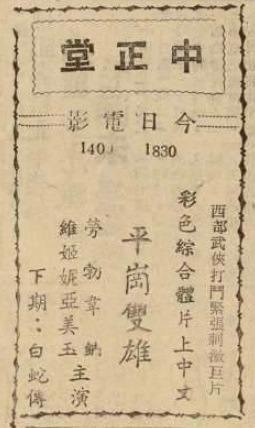 中正堂
今日電影
1400 1830
西部武俠打鬥緊張刺激巨片
彩色綜合體片上中文
平崗雙雄
勞勃韋納
維姬妮亞美玉
主演
下期：白蛇傳